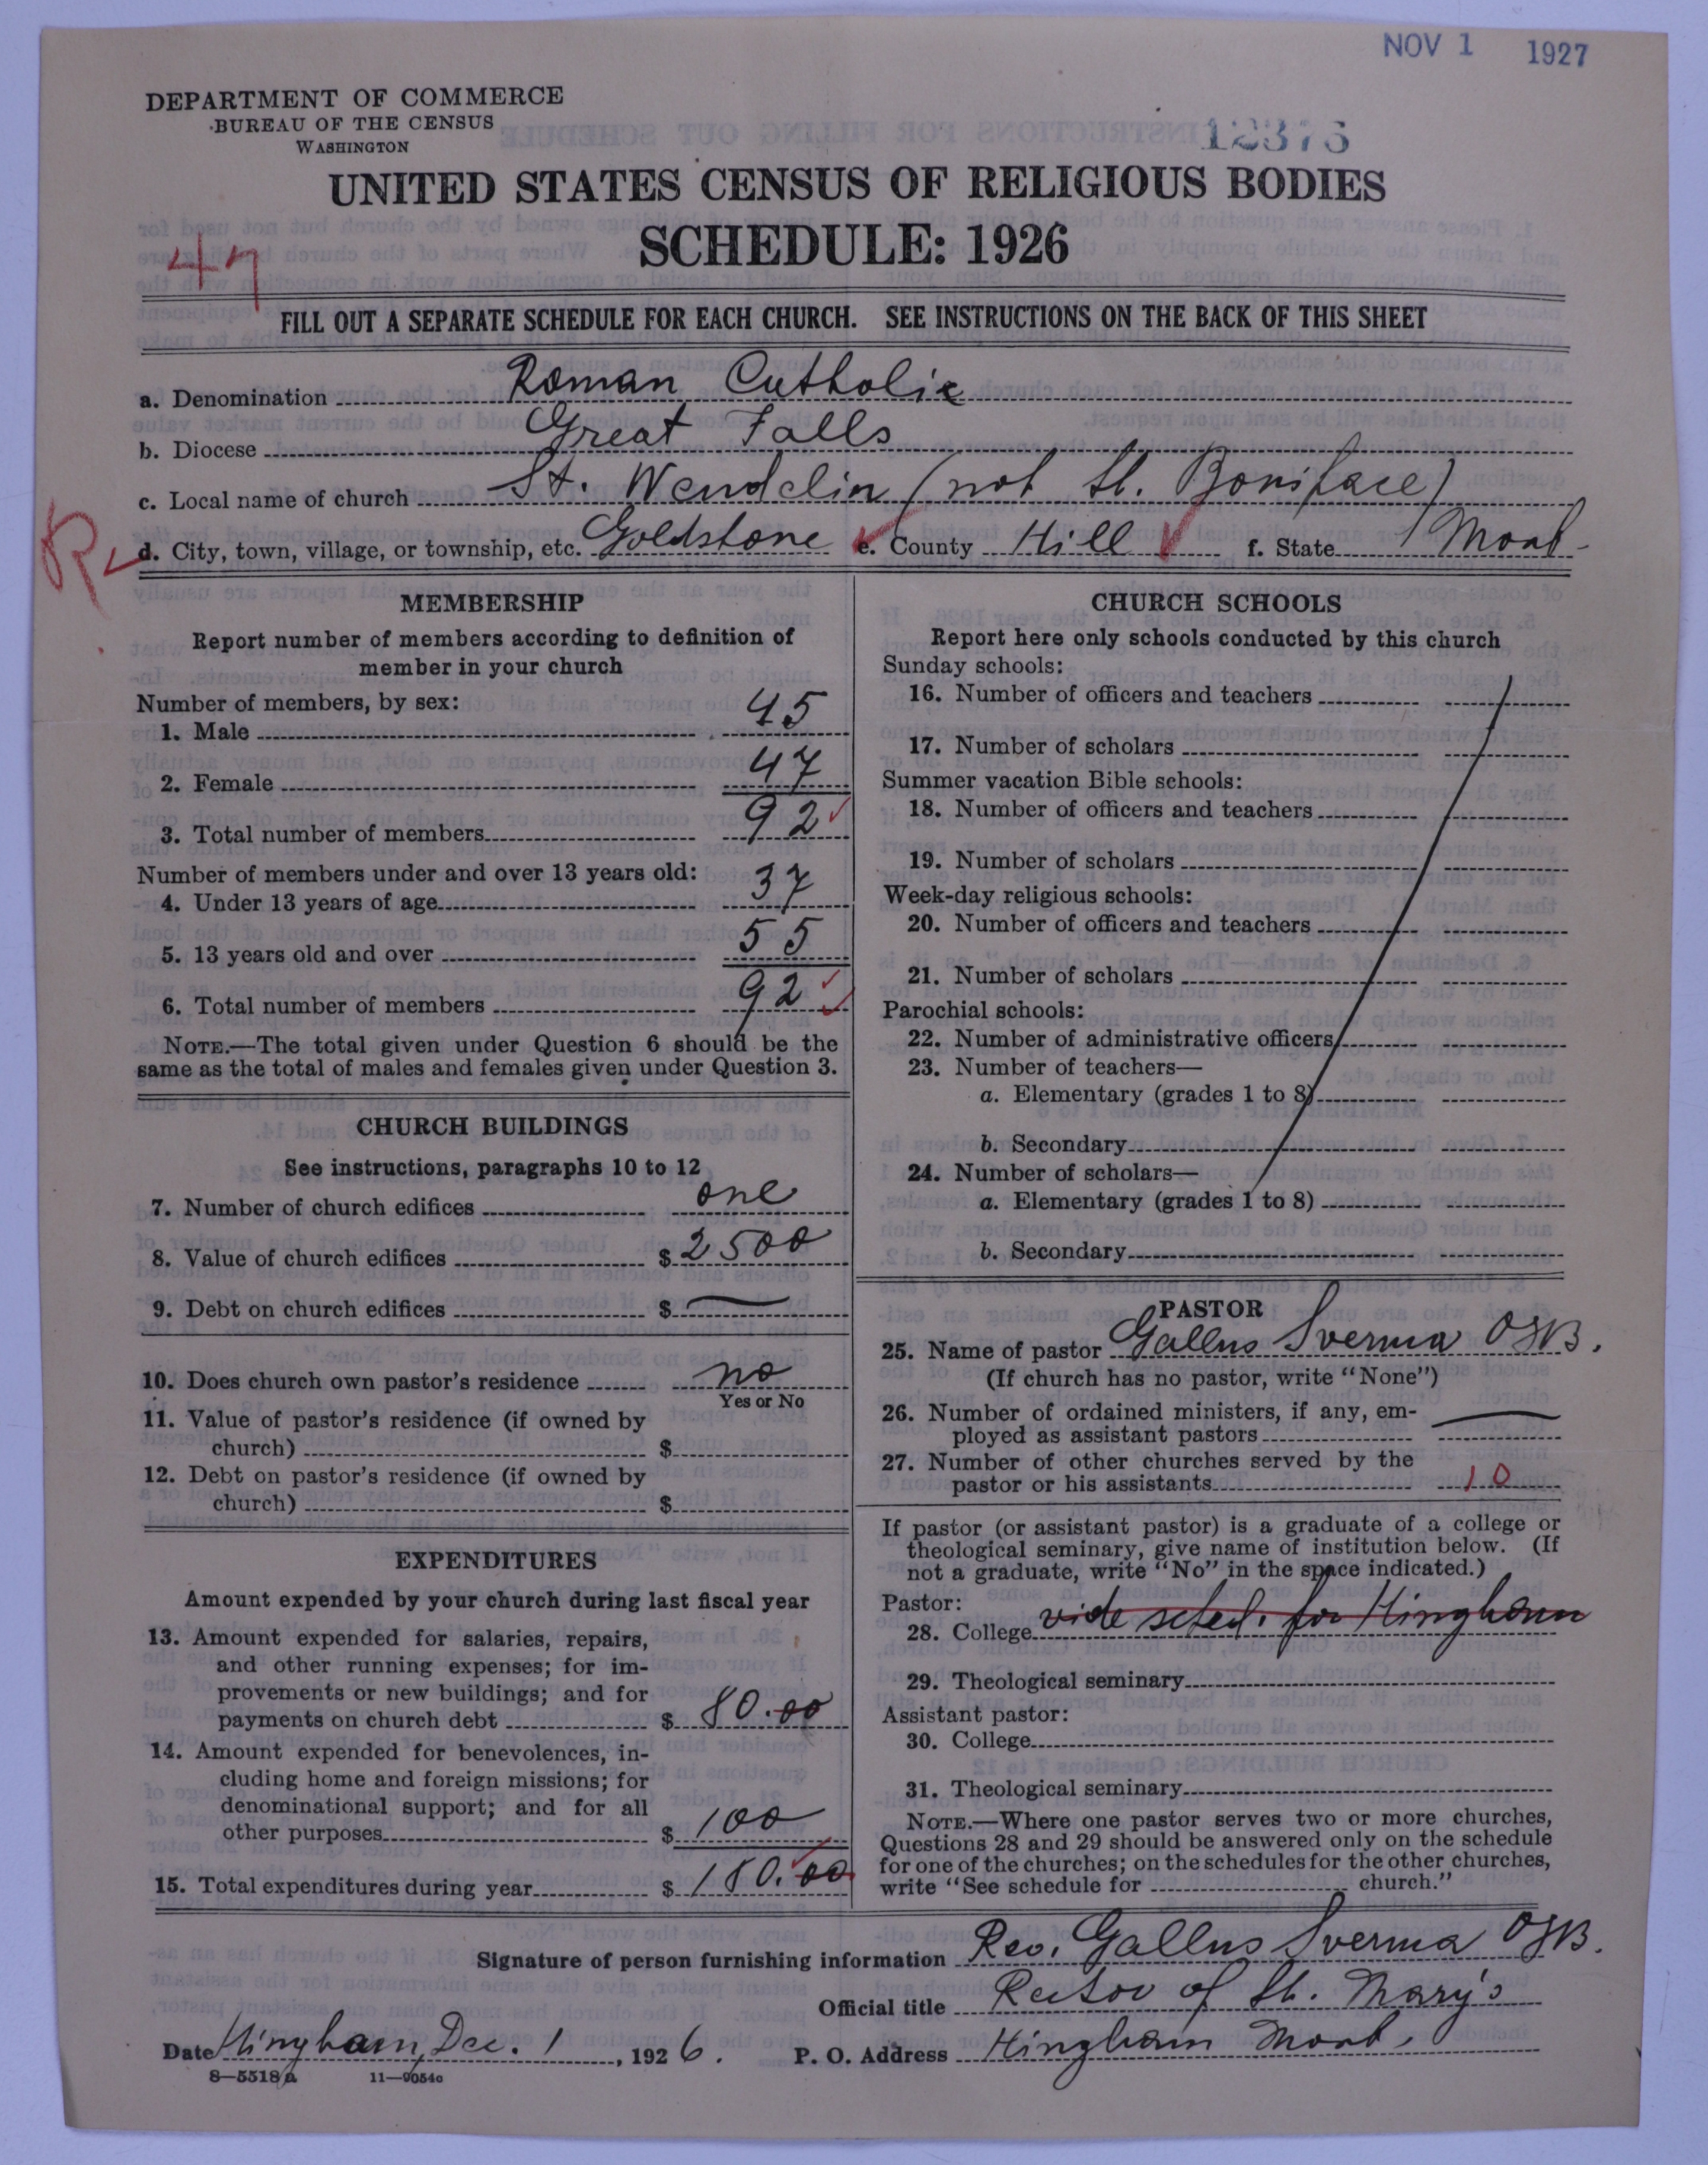 NOV 1 1927
DEPARTMENT OF COMMERCE
BUREAU OF THE CENSUS
WASHINGTON
12376
UNITED STATES CENSUS OF RELIGIOUS BODIES
SCHEDULE: 1926
47
FILL OUT A SEPARATE SCHEDULE FOR EACH CHURCH. SEE INSTRUCTIONS ON THE BACK OF THIS SHEET
a. Denomination Roman Catholic
b. Diocese Great Falls
c. Local name of church St. Wendelin (not St. Boniface)
d. City, town, village, or township, etc. Goldstone e. County Hill f. State Mont.
MEMBERSHIP
Report number of members according to definition of
member in your church
Number of members, by sex:
1. Male 45
2. Female 47
3. Total number of members 92
Number of members under and over 13 years old:
4. Under 13 years of age 37
5. 13 years old and over 55
6. Total number of members 92
NOTE.—The total given under Question 6 should be the
same as the total of males and females given under Question 3.
CHURCH BUILDINGS
See instructions, paragraphs 10 to 12
7. Number of church edifices one
8. Value of church edifices $ 2500
9. Debt on church edifices $ —
10. Does church own pastor's residence no
Yes or No
11. Value of pastor's residence (if owned by
church) $
12. Debt on pastor's residence (if owned by
church) $
EXPENDITURES
Amount expended by your church during last fiscal year
13. Amount expended for salaries, repairs,
and other running expenses; for im-
provements or new buildings; and for
payments on church debt $ 80.00
14. Amount expended for benevolences, in-
cluding home and foreign missions; for
denominational support; and for all
other purposes $ 100
15. Total expenditures during year $ 180.00
CHURCH SCHOOLS
Report here only schools conducted by this church
Sunday schools:
16. Number of officers and teachers
17. Number of scholars
Summer vacation Bible schools:
18. Number of officers and teachers
19. Number of scholars
Week-day religious schools:
20. Number of officers and teachers
21. Number of scholars
Parochial schools:
22. Number of administrative officers
23. Number of teachers—
a. Elementary (grades 1 to 8)
b. Secondary
24. Number of scholars—
a. Elementary (grades 1 to 8)
b. Secondary
PASTOR
25. Name of pastor Gallus Sverma OSB.
(If church has no pastor, write "None")
26. Number of ordained ministers, if any, em-
ployed as assistant pastors —
27. Number of other churches served by the
pastor or his assistants 10
If pastor (or assistant pastor) is a graduate of a college or
theological seminary, give name of institution below. (If
not a graduate, write "No" in the space indicated.)
Pastor:
28. College vide sched. for Hingham
29. Theological seminary
Assistant pastor:
30. College
31. Theological seminary
NOTE.—Where one pastor serves two or more churches,
Questions 28 and 29 should be answered only on the schedule
for one of the churches; on the schedules for the other churches,
write "See schedule for church."
Signature of person furnishing information Rev. Gallus Sverma OSB.
Official title Rector of St. Mary's
Date Hingham, Dec. 1, 1926. P. O. Address Hingham Mont.
8—5518a 11—9054c